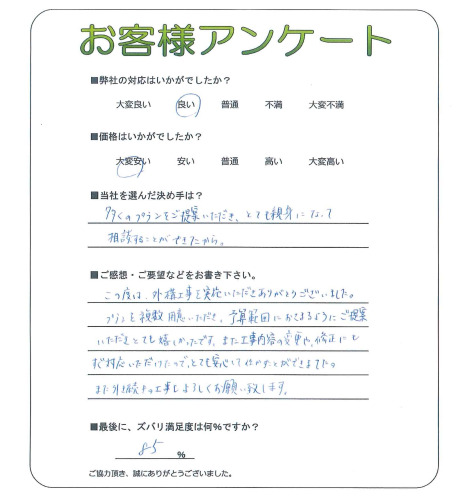 お客様アンケート
■弊社の対応はいかがでしたか？
大変良い 良い 普通 不満 大変不満
■価格はいかがでしたか？
大変安い 安い 普通 高い 大変高い
■当社を選んだ決め手は？
多くのプランをご提案いただき、とても親身になって
相談することができたから。
■ご感想・ご要望などをお書き下さい。
この度は、外構工事を実施いただきありがとうございました。
プランを複数用意いただき、予算範囲におさまるようにご提案
いただきとても嬉しかったです。また工事内容の変更や、修正にも
ご対応いただけたので、とても安心して任かすことができました。
また外構の工事もよろしくお願い致します。
■最後に、ズバリ満足度は何％ですか？
85 ％
ご協力頂き、誠にありがとうございました。